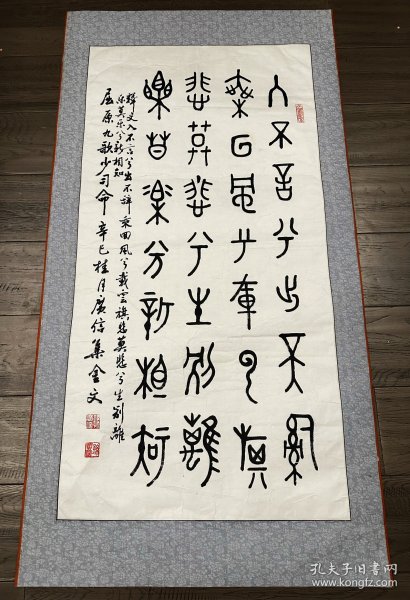 入不言兮出不辭
乘回風兮載雲旗
悲莫悲兮生別離
樂莫樂兮新相知
釋文入不言兮出不辞乘回風兮載雲旗悲莫悲兮生别離
乐莫乐兮新相知
屈原九歌少司命 辛巳桂月廣信集金文
孔夫子旧书网
www.kongfz.com